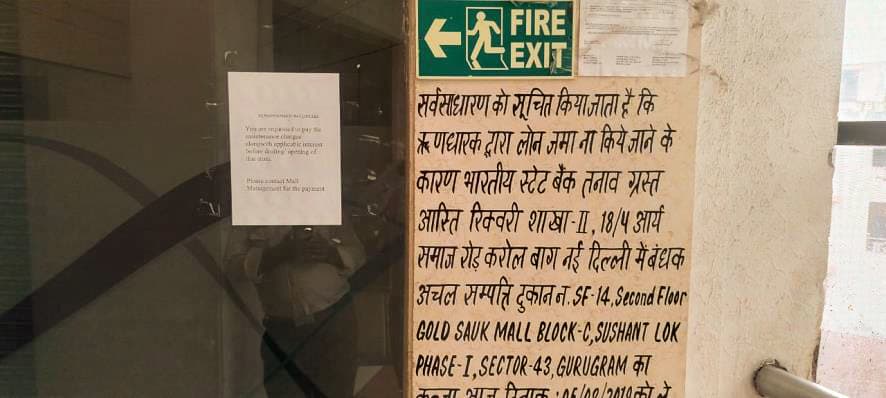 FIRE
EXIT
You are requested to pay the
maintenance charges
alongwith applicable interest
before dealing/ opening of
this unit.
Please contact Mall
Management for the payment.
सर्वसाधारण को सूचित किया जाता है कि
ऋणधारक द्वारा लोन जमा ना किये जाने के
कारण भारतीय स्टेट बैंक तनाव ग्रस्त
आस्ति रिक्वरी शाखा-II, 18/4 आर्य
समाज रोड़ करोल बाग नई दिल्ली में बंधक
अचल सम्पत्ति दुकान न. SF-14, Second Floor
GOLD SAUK MALL BLOCK-C, SUSHANT LOK
PHASE-I, SECTOR-43, GURUGRAM का
कब्जा आज दिनांक : 05/08/2019 को ले